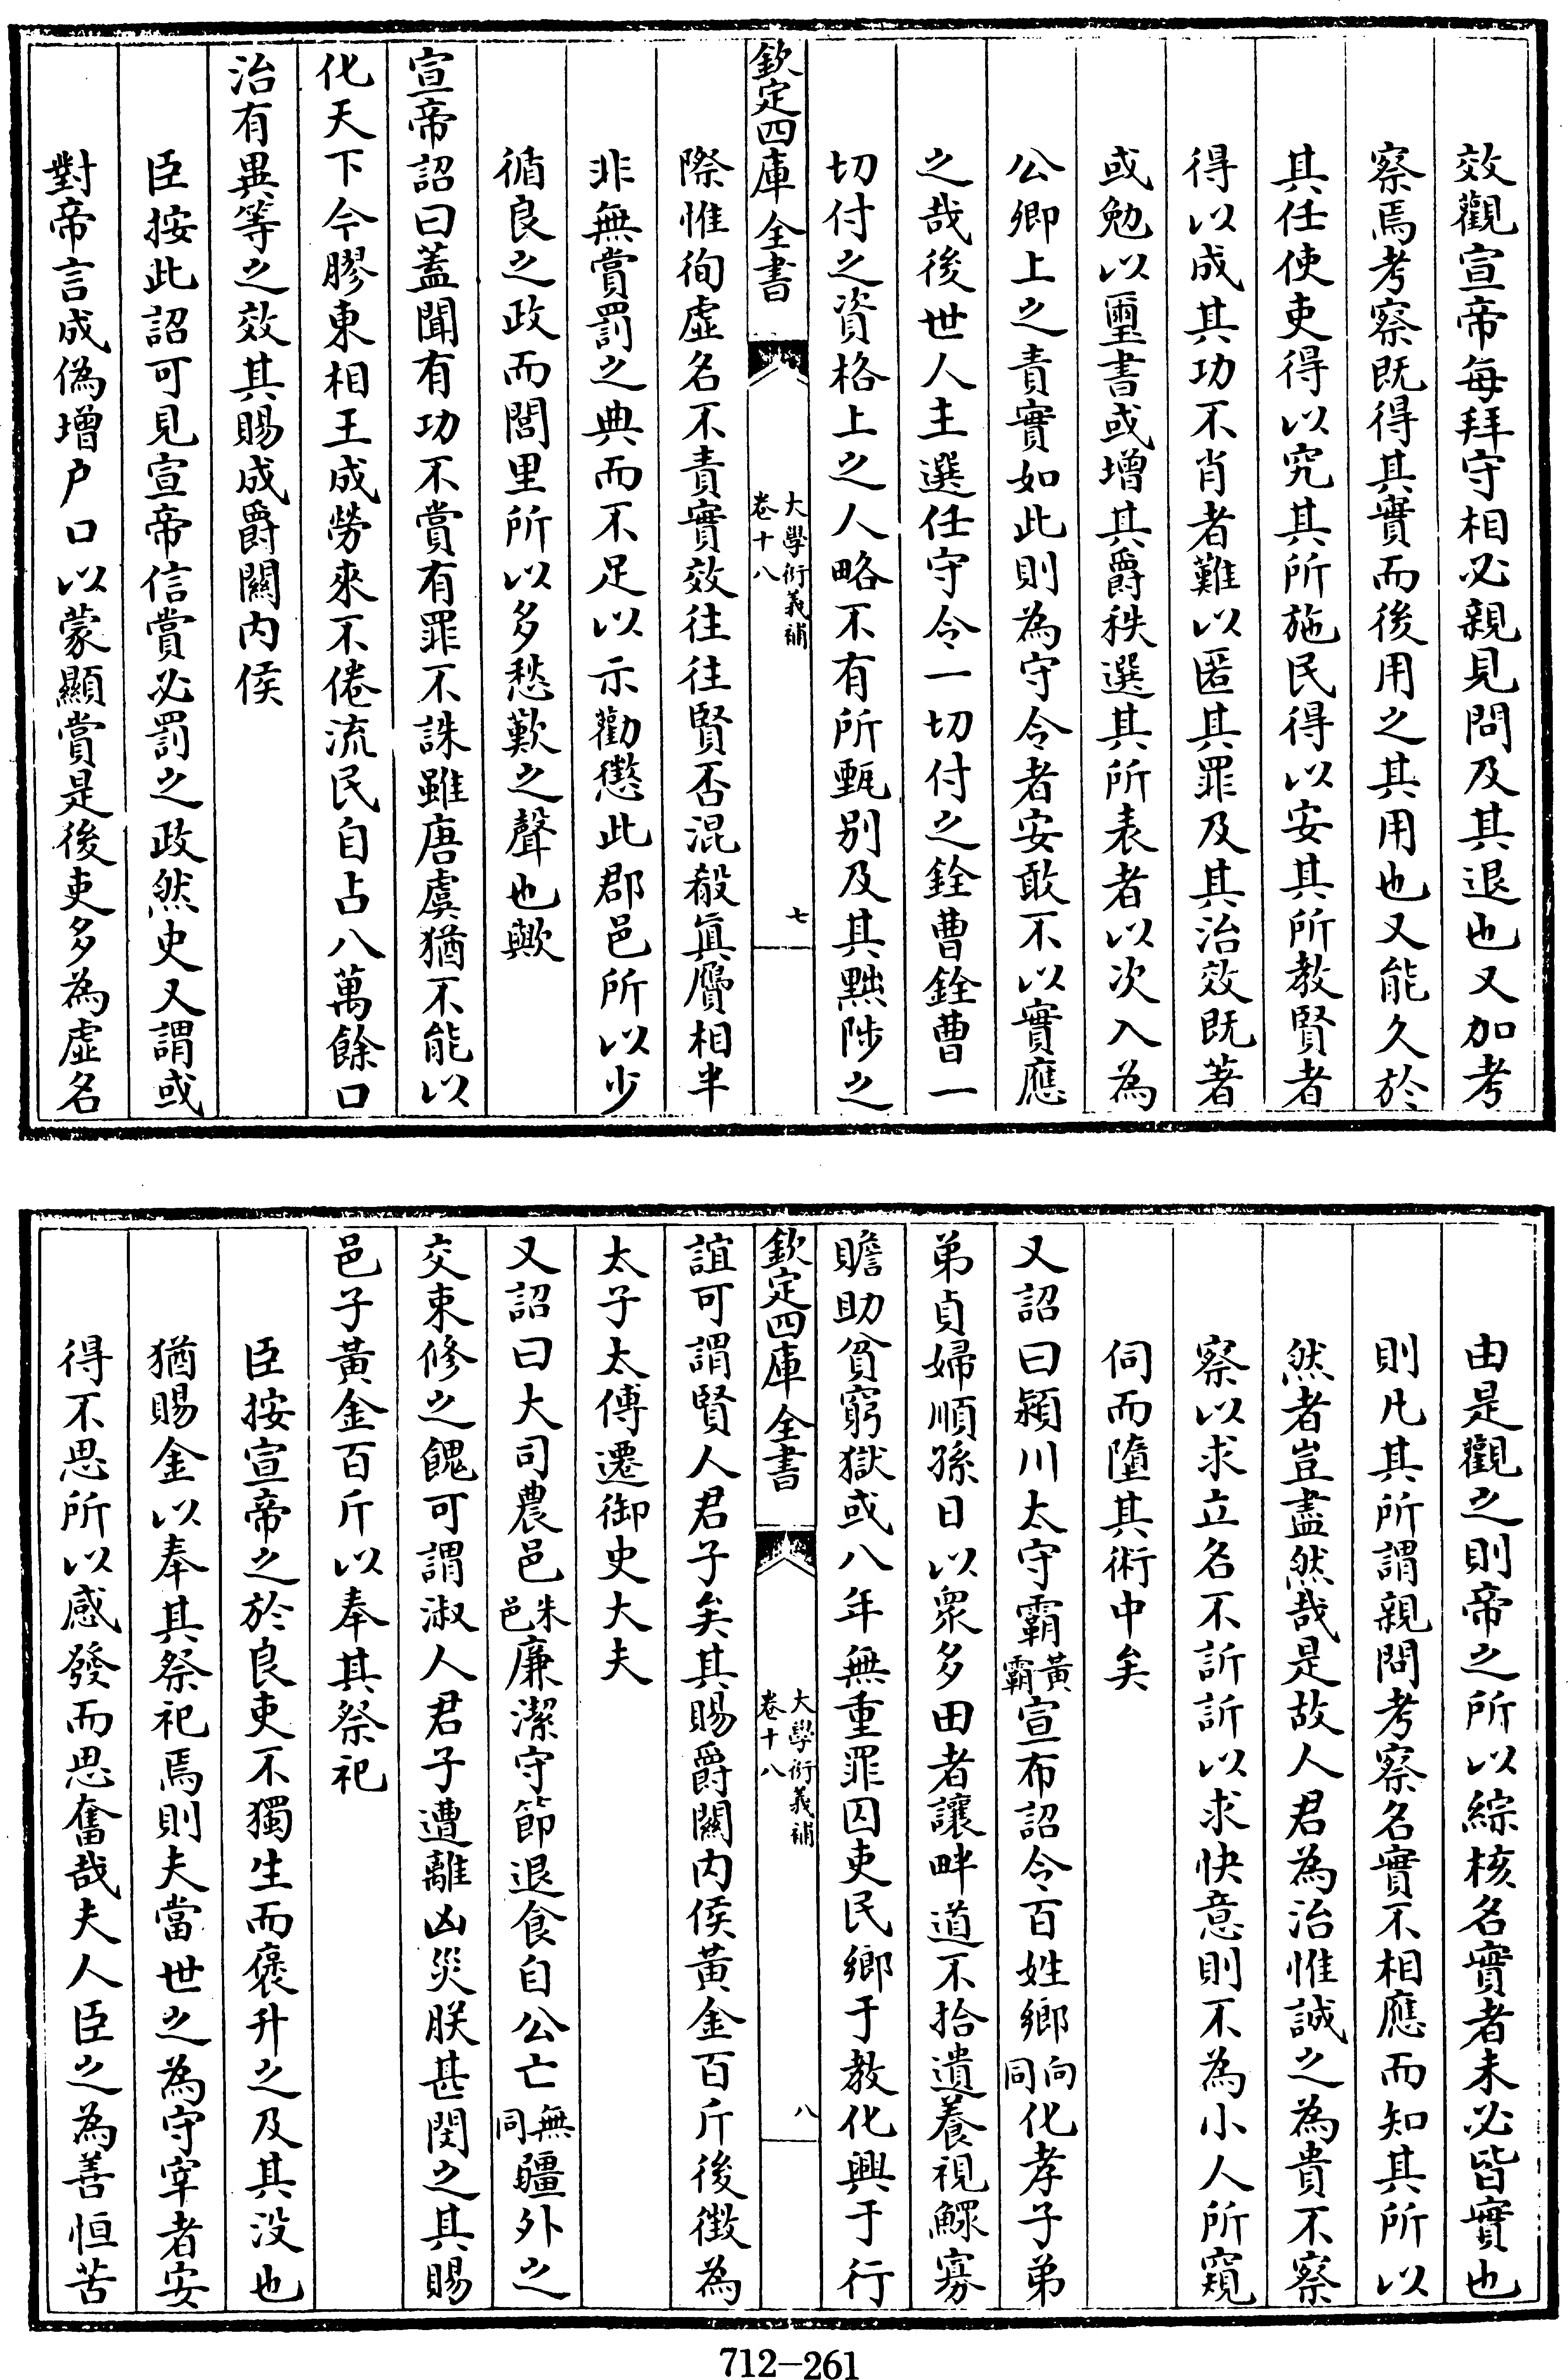 效觀宣帝每拜守相必親見問及其退也又加考
察焉考察既得其實而後用之其用也又能久於
其任使吏得以究其所施民得以安其所教賢者
得以成其功不肖者難以匿其罪及其治效既著
或勉以璽書或增其爵秩選其所表者以次入為
公卿上之責實如此則為守令者安敢不以實應
之哉後世人主選任守令一切付之銓曹銓曹一
切付之資格上之人略不有所甄别及其黜陟之
欽定四庫全書
大學衍義補
卷十八
七
際惟徇虛名不責實效往往賢否混殽真贋相半
非無賞罰之典而不足以示勸懲此郡邑所以少
循良之政而閭里所以多愁歎之聲也歟
宣帝詔曰蓋聞有功不賞有罪不誅雖唐虞猶不能以
化天下今膠東相王成勞來不倦流民自占八萬餘口
治有異等之效其賜成爵關内侯
臣按此詔可見宣帝信賞必罰之政然史又謂或
對帝言成偽增户口以蒙顯賞是後吏多為虛名
由是觀之則帝之所以綜核名實者未必皆實也
則凡其所謂親問考察名實不相應而知其所以
然者豈盡然哉是故人君為治惟誠之為貴不察
察以求立名不訢訢以求快意則不為小人所窺
伺而墮其術中矣
又詔曰潁川太守霸黃霸宣布詔令百姓鄉向同化孝子弟
弟貞婦順孫日以衆多田者讓畔道不拾遺養視鰥寡
贍助貧窮獄或八年無重罪囚吏民鄉于教化興于行
欽定四庫全書
大學衍義補
卷十八
八
誼可謂賢人君子矣其賜爵關内侯黃金百斤後徵為
太子太傅遷御史大夫
又詔曰大司農邑朱邑廉潔守節退食自公亡無同疆外之
交束修之餽可謂淑人君子遭離凶災朕甚閔之其賜
邑子黃金百斤以奉其祭祀
臣按宣帝之於良吏不獨生而褒升之及其没也
猶賜金以奉其祭祀焉則夫當世之為守宰者安
得不思所以感發而思奮哉夫人臣之為善恒苦
712-261